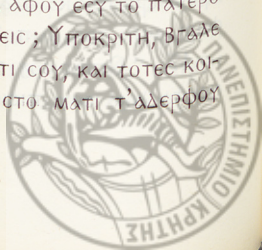 ἀφοῦ ἐσὺ τὸ πάτερο
εις; Ὑποκριτή, βγάλε
τι σου, καὶ τότες κοι-
στὸ μάτι τ' ἀδερφοῦ
ΠΑΝΕΠΙΣΤΗΜΙΟ ΚΡΗΤΗΣ